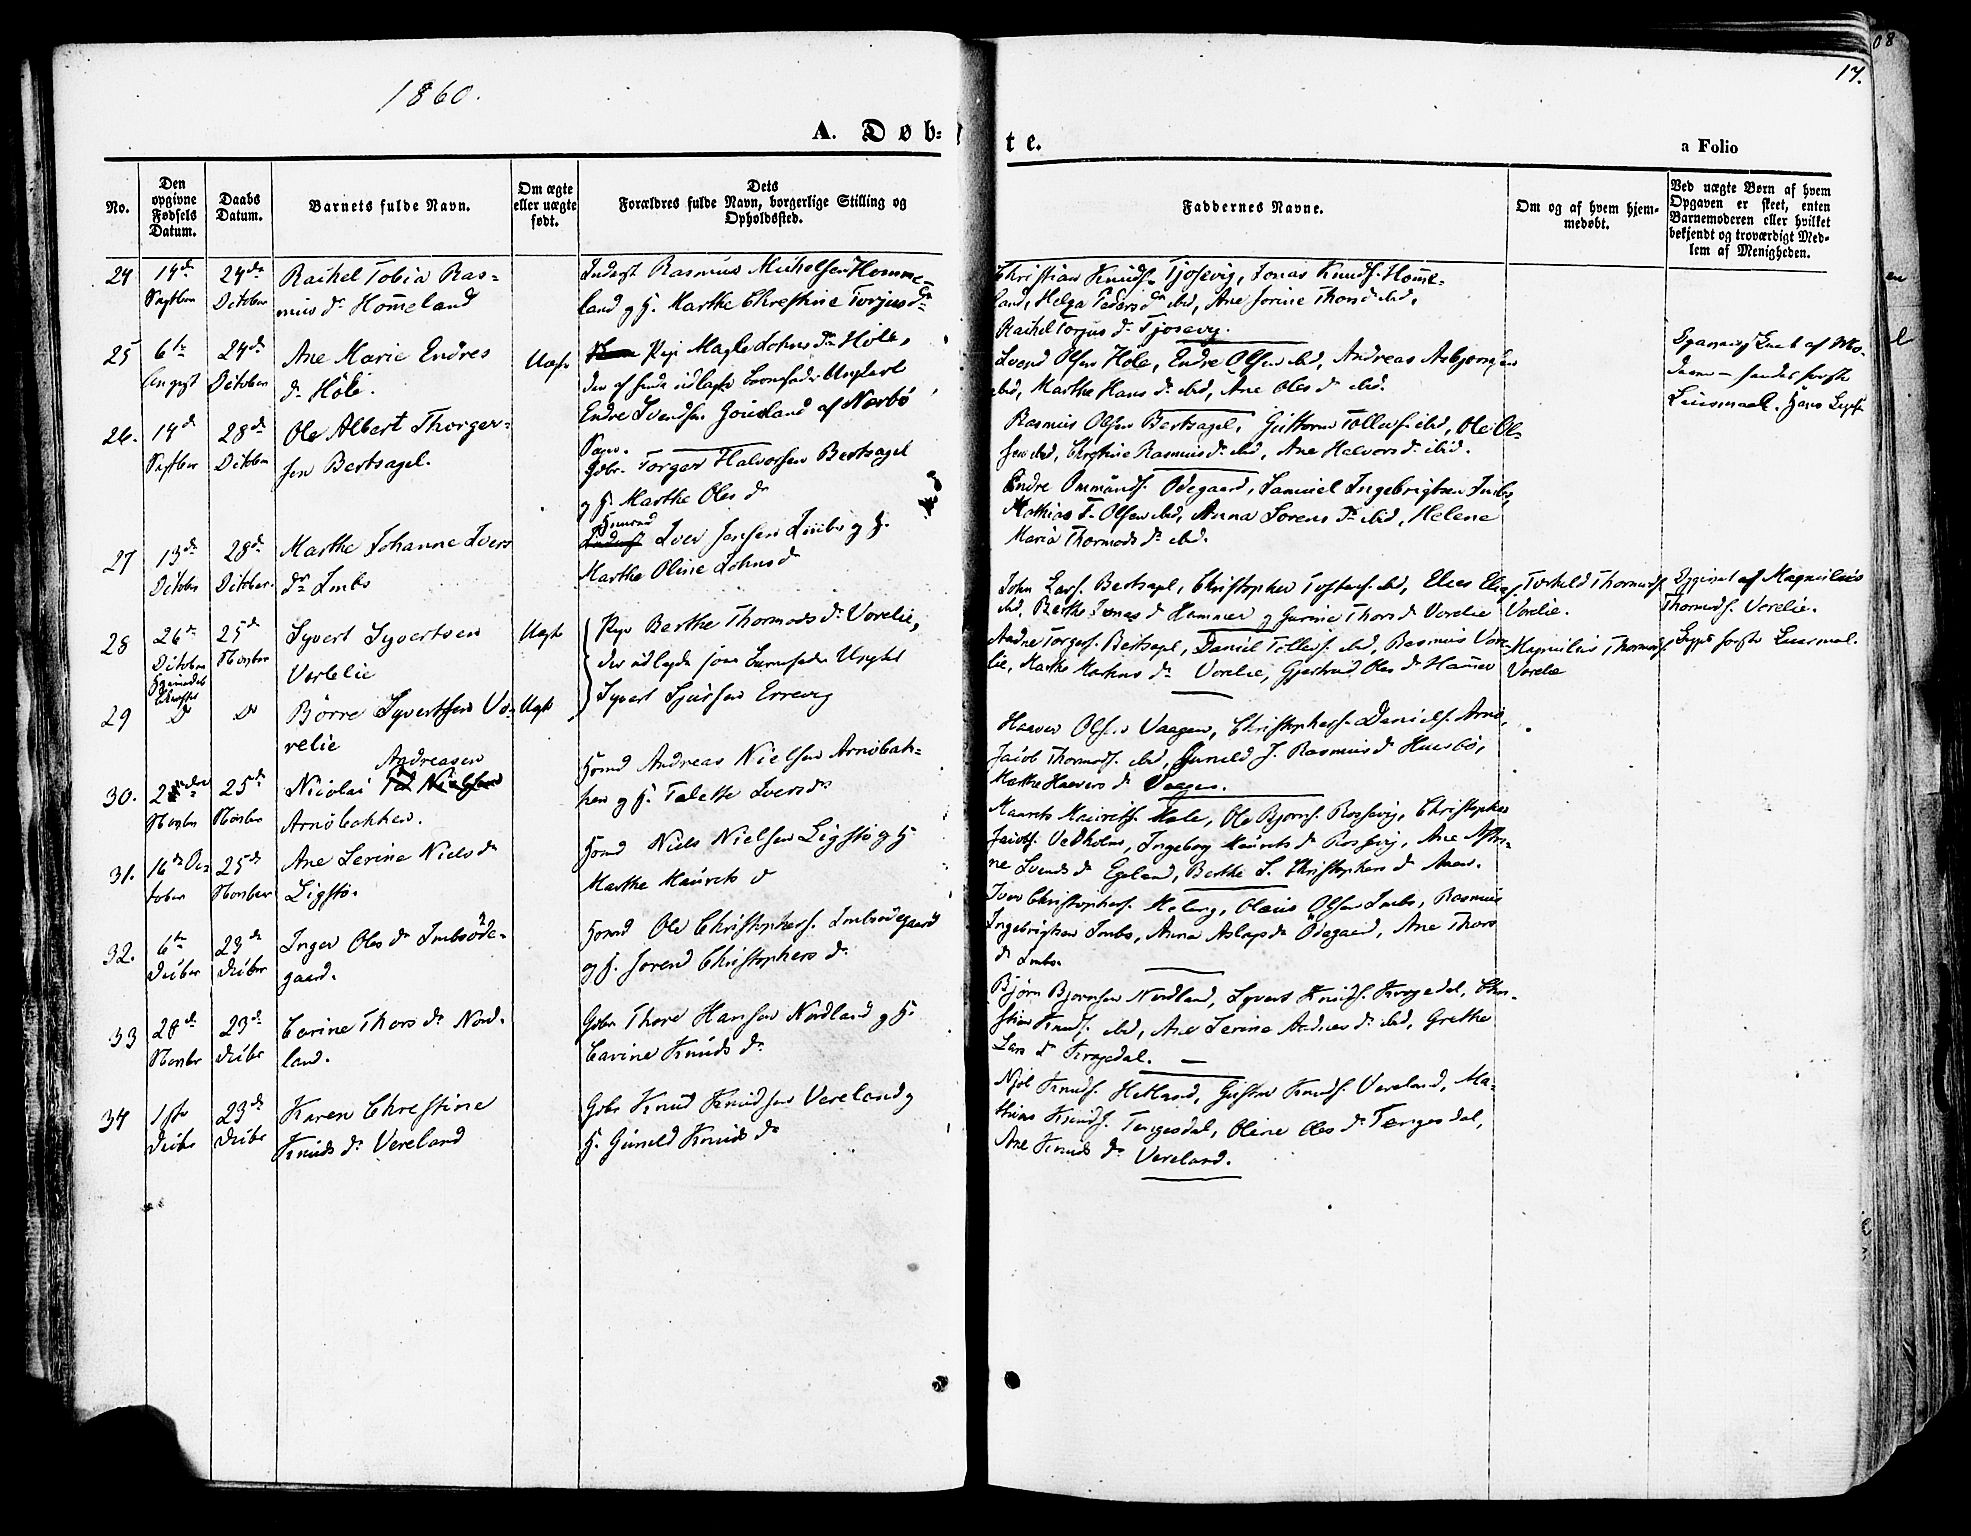 1860.
A. Døb=
te.
08
17.
a Folio
No.
Den
opgivne
Fødsels
Datum.
Daabs
Datum.
Barnets fulde Navn.
Om ægte
eller uægte
født.
Dets
Forældres fulde Navn, borgerlige Stilling og
Opholdssted.
Faddernes Navne.
Om og af hvem hjem-
medøbt.
Ved uægte Børn af hvem
Opgaven er skeet, enten
Barnemoderen eller hvilket
bekjendt og troværdigt Med-
lem af Menigheden.
24
14de
Septbr
24de
October
Rachel Tobia Ras-
mus dr Hommeland
Inderst Rasmus Michelsen Homme-
land og H. Marthe Christine Torjusdr
Christian Knuds. Tjosevig, Jonas Knuds. Homme-
land, Helga Pedersdr ibd, Ane Serine Thorsd ibd,
Rachel Torjus dr Tjosevig.
25
6te
August
24de
October
Ane Marie Endres
dr Höle.
Uægte
Pige Magla Johns dr Höle,
den af hende udlagte Barnefader Ungkarl
Endre Svendsen af Nærbö
Sogn.
Svend Olsen Hole, Endre Olsen ibd, Andreas Asbjørnsen
ibd, Marthe Hans dr ibd, Ane Oles dr ibd.
af Mo-
deren - hendes første
Leiermaal. Hans
26.
14de
Septbr
28de
October
Ole Albert Thorger-
sen Bertsagel.
Gbr. Torger Halvorsen Bertsagel
og H. Marthe Oles dr
Rasmus Olsen Bertsagel, Guttorm Tollefs. ibd, Ole Ol-
sen ibd, Christine Rasmus dr ibd, Ane Halvors dr ibid.
27
13de
October
28de
October.
Marthe Johanne Ivers
dr Imbs
Huusmd
Iver Jensen Imbs og H.
Marthe Oline Johnsd
Endre Ommunds. Ødegaard, Samuel Ingebrigtsen Imbs,
Mathias T. Olsen ibd, Anna Sorens dr ibd, Helene
Maria Thormods dr ibd.
28
26de
October
25de
Novbr
Syvert Syvertsen
Vorelie
Uægte
Pige Berthe Thormods dr Vorelie,
der udlagde som Barnefader Ungkl
Syvert Sjursen Errevig
John Lars. Bertsagel, Christopher Tostens. ibd, Elias Elias.
ibd, Berthe Jonas d Hammer og Gurine Thors dr Vorelie
Torkeld Thormods.
Vorelie.
Opgivet af Magnelius
Thormods. Vorelie.
29
do
do
Börre Syvertsen Vo-
relie
Uægte
Andre Torgers. Bertsagel, Daniel Tollefs. ibd, Rasmus Vore-
lie, Marthe Markus dr Vorelie, Gjertrud Oles dr Hammer
Magnelius Thormods.
Vorelie
Begges første Leiermal.
30.
2den
Novbr
25de
Novbr
Andreasen
Nicolai
Arnöbakken.
Hsmd Andreas Nielsen Arnöbak-
ken og H. Talette Iversdr
Haaver Olsen Vaagen, Christophers. Daniels. Arnö,
Jacob Thormods. ibd, Gunild J. Rasmus dr Huusbö,
Marthe Haavers dr Vaagen.
31.
16de Oc-
tober
25de
Novbr
Ane Serine Niels dr
Ligstø.
Hsmd Niels Nielsen Ligstø og H
Marthe Maurits d
Maurits Maurits. Hole, Ole Bjorns. Rossevig, Christopher
Jacobs. Vedholm, Ingeborg Maurits dr Rossevig, Ane
ne Svends dr Egeland, Berthe S. Christophers dr Aaen.
32.
6te
Decbr
23de
Decbr
Inger Oles dr Imbsöde-
gaard.
Hsmd Ole Christophers. Imbsödegaard
og H. Sorend Christophers dr
Iver Christophers. Meberg, Olaus Olsen Imbs, Rasmus
Ingebrigtsen Imbs, Anna Aslags dr Ödegaard, Ane Thors
dr Imbs.
33
28de
Novbr
23de
Decbr
Carine Thors dr Nord-
land.
Gbr Thore Hansen Nordland og H.
Carine Knuds dr
Björn Bjornsen Nordland, Syvert Knuds. Krogedal, Chri-
stian Knuds. ibd, Ane Serine Andreas dr ibd, Grethe
Lars dr Krogedal.
34
1ste
Decbr
23de
Decbr
Karen Christine
Knuds dr Vereland
Gbr Knud Knudsen Vereland og
H. Gunild Knuds dr
Njel Knuds. Hetland, Gustav Knuds. Vereland, Ma-
thias Knuds. Tengesdal, Oline Oles dr Tengesdal,
Ane Knuds dr Vereland.